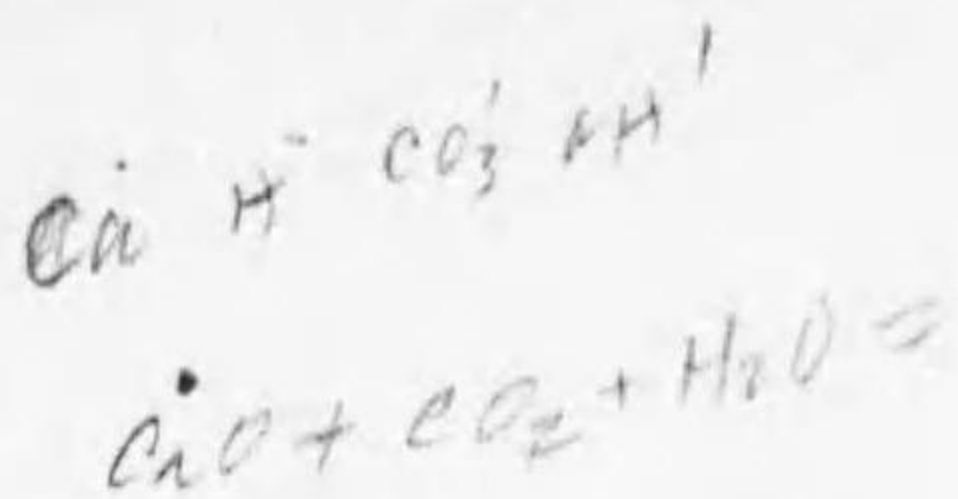 Ca˙ H˙ CO₃' OH'
CaO + CO₂ + H₂O =